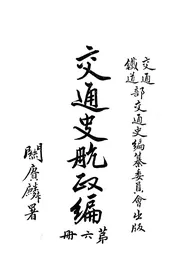 交通
鐵道部交通史編纂委員會出版
交通史航政編
第六册
關賡麟署